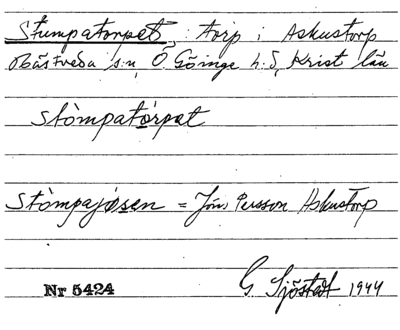 Stumpatorpet, torp i Askustorp
Hästveda sn, Ö. Göinge hd, Krist län
stòmpatórpet
Stòmpajösen = Jöns Persson Askustorp
Nr 5424 G. Sjöstedt 1944